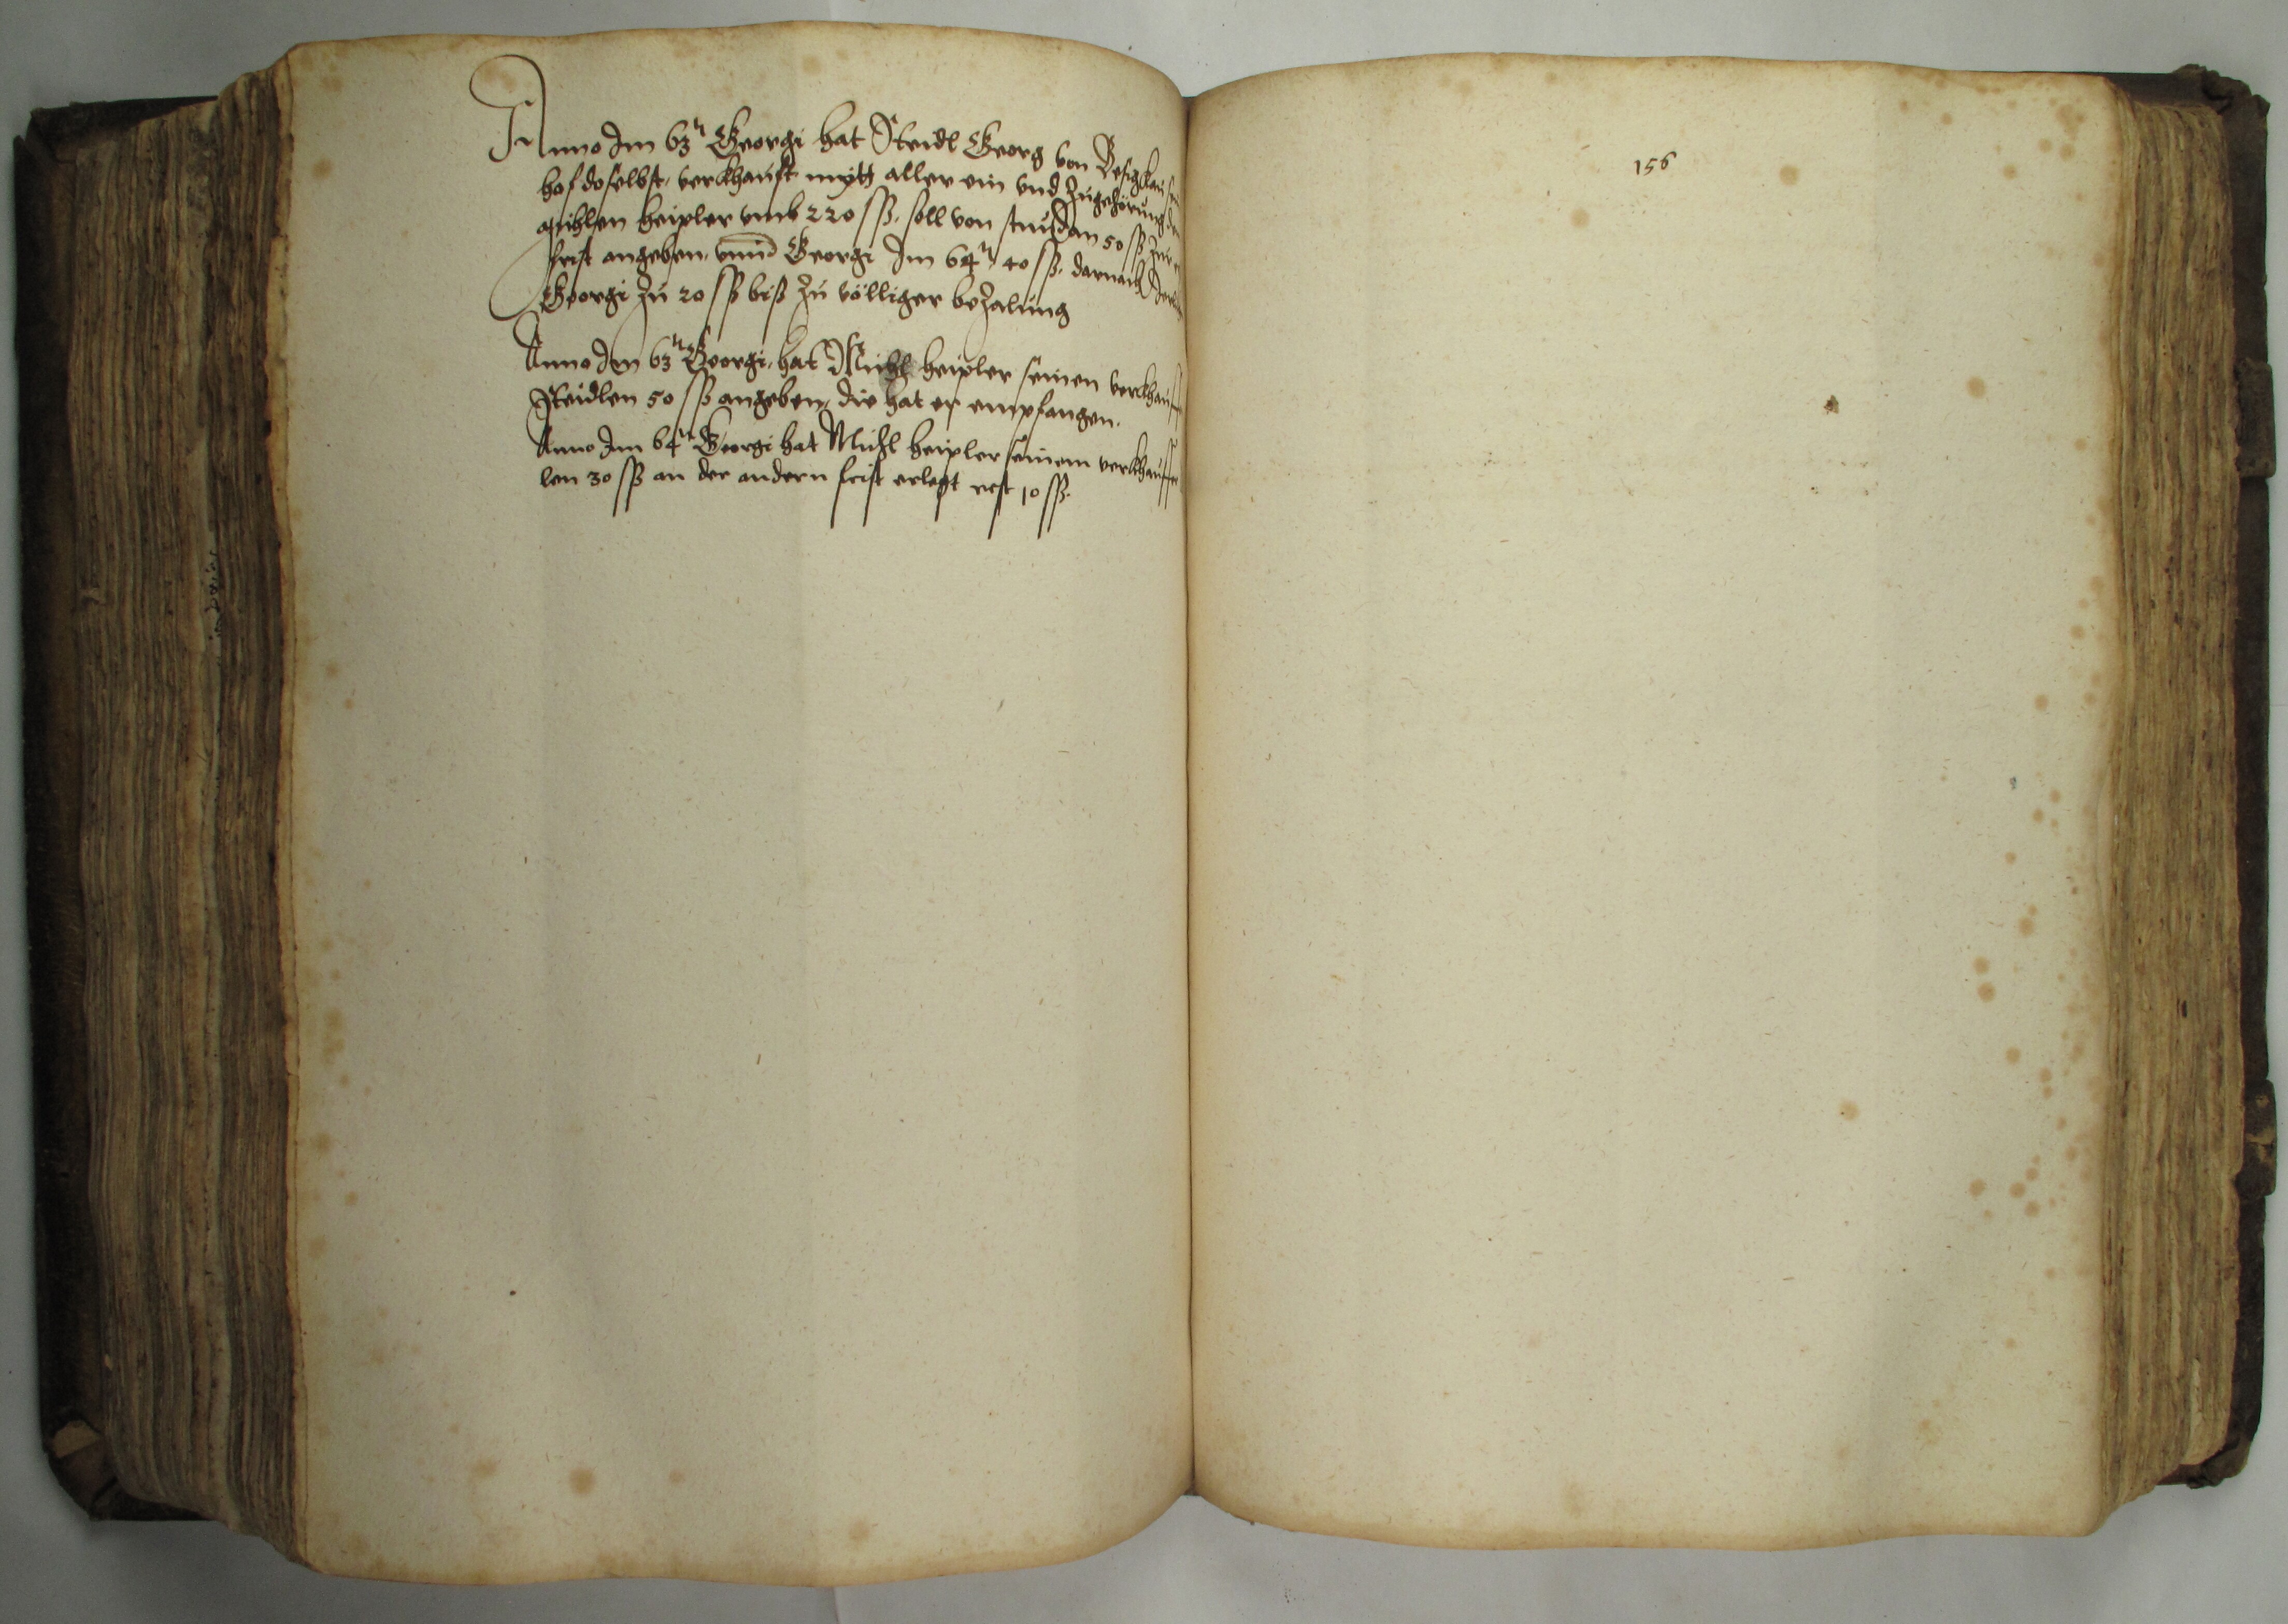 Anno Im 63ᵗⁿ Georgi hat Steidl Georg von
hof doselbst, verkhauft mytt aller ein vnd Zugehörung
Michlen heipler vmb 220 ſß. soll von stund an 50 ſß Zur
frist angeben, vnnd Georgi Im 64ᵗⁿ 40 ſß. darnach
Georgi Zu 20 ſß biß Zu völliger beZalung
Anno Im 63ᵗⁿ Georgi, hat Michl heipler seinen verkhauffer
Steidlen 50 ſß angeben, die hat er empfangen.
Anno Im 64ᵗⁿ Georgi hat Michl heipler seinem verkhauffer
len 30 ſß an der andern frist erlegt rest 10 ſß.
156